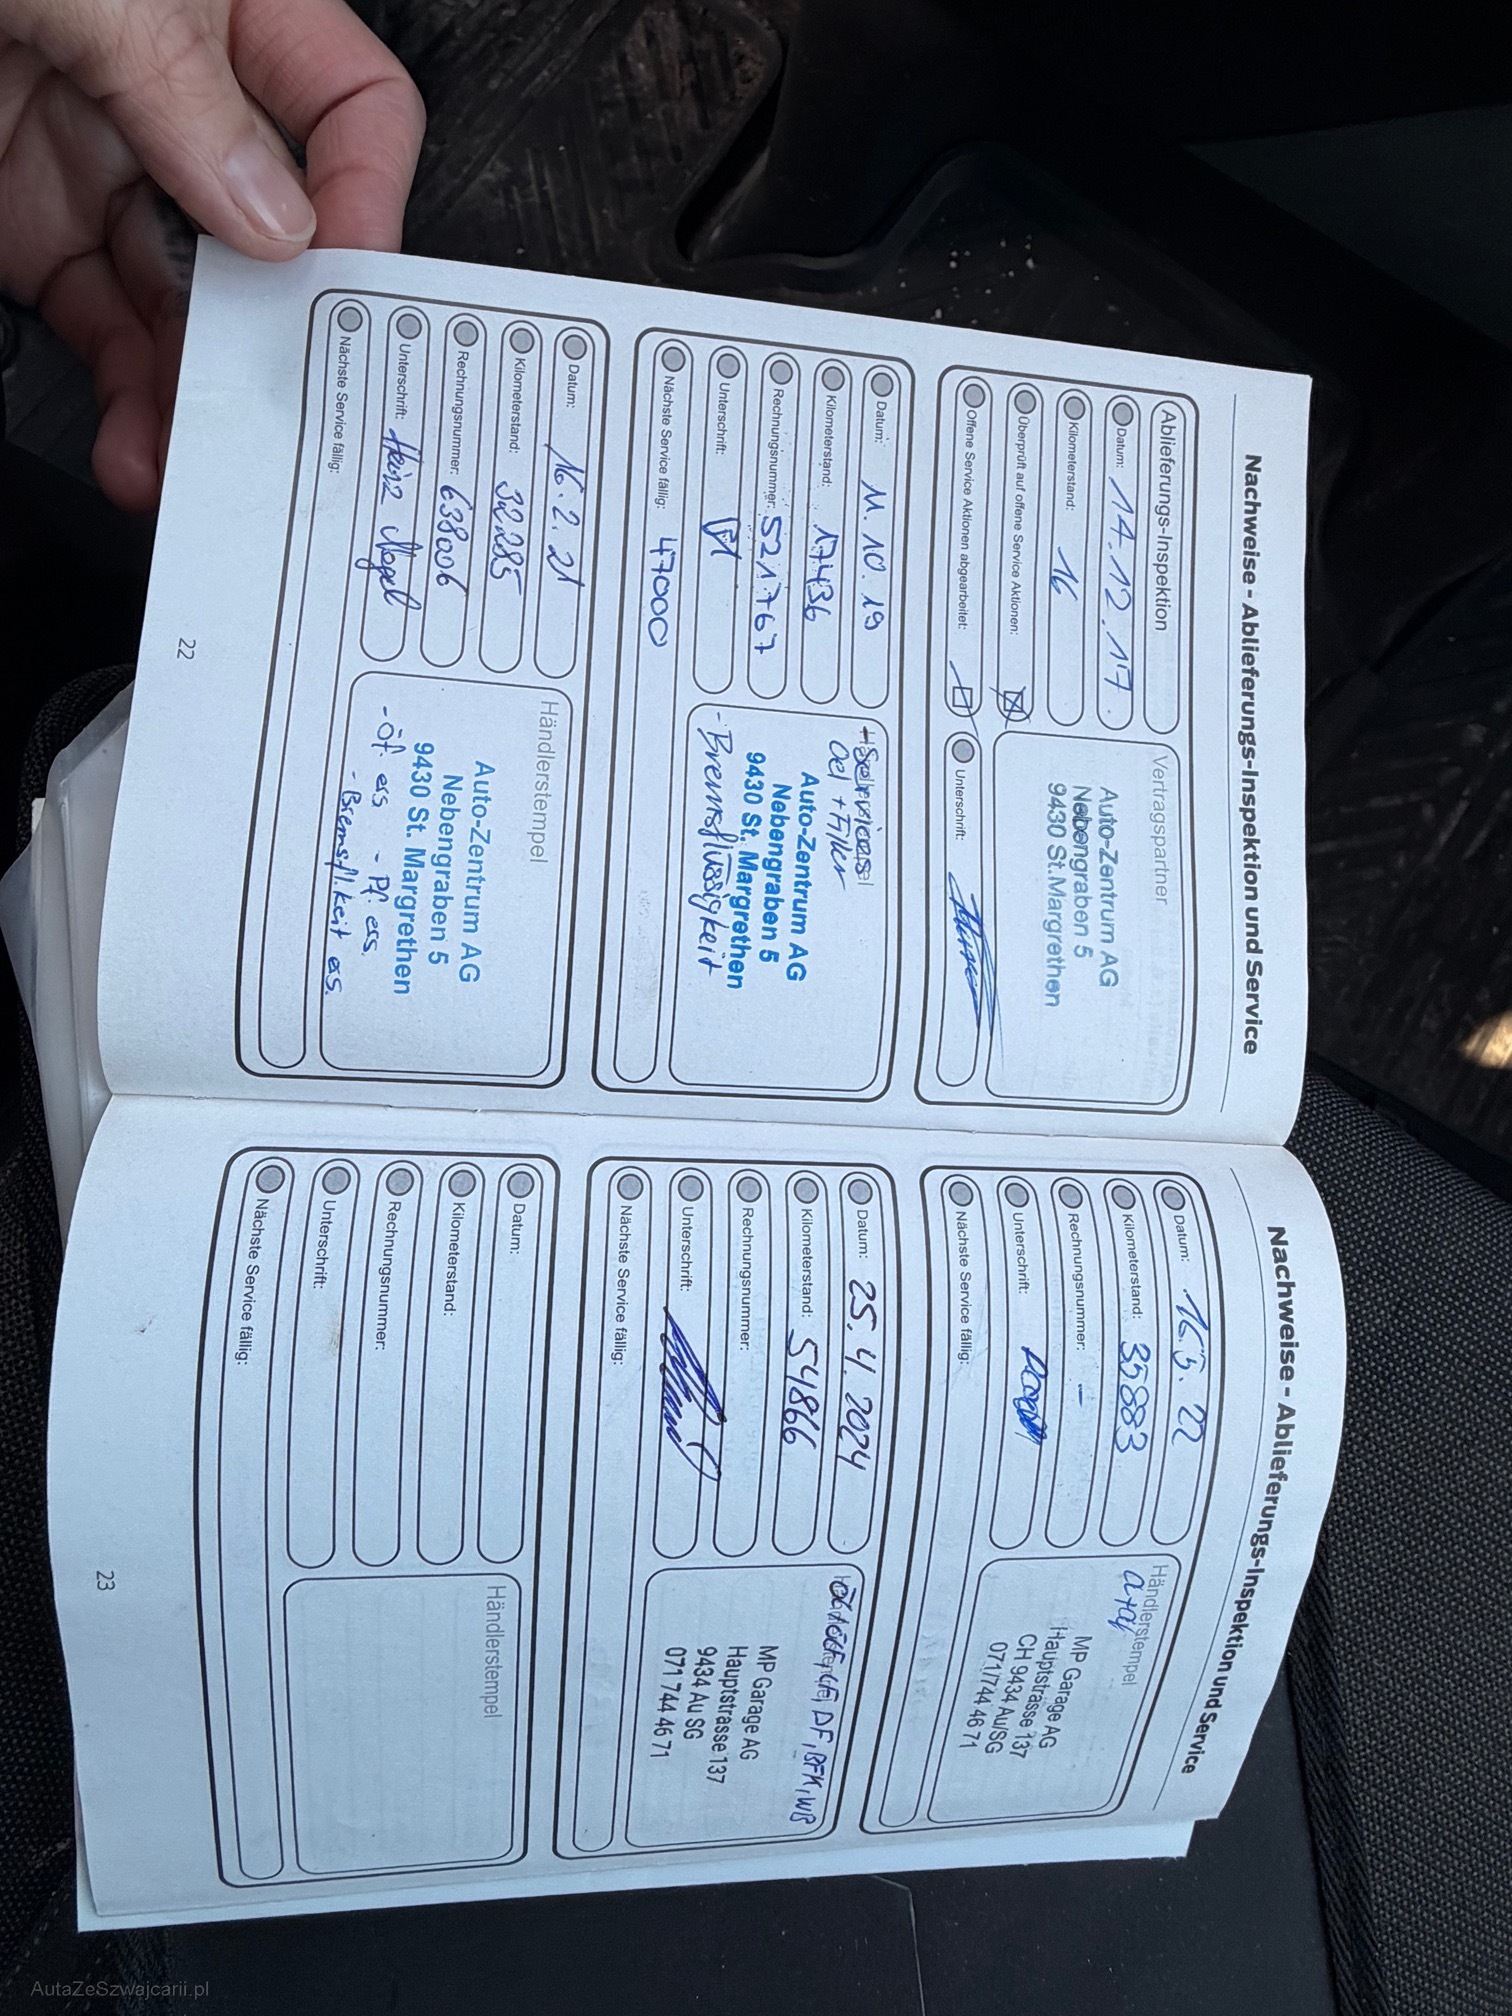 Nachweise - Ablieferungs-Inspektion und Service
Ablieferungs-Inspektion
Datum: 14.12.17.
Kilometerstand: 16
Überprüft auf offene Service Aktionen:
Offene Service Aktionen abgearbeitet:
Vertragspartner
Auto-Zentrum AG
Nebengraben 5
9430 St.Margrethen
Unterschrift:
Datum: 11.10.19
Kilometerstand: 17436
Rechnungsnummer: 521767
Unterschrift:
Nächste Service fällig: 47000
Service
Oel + Filter
Auto-Zentrum AG
Nebengraben 5
9430 St. Margrethen
- Bremsflüssigkeit
Datum: 16.2.21
Kilometerstand: 32285
Rechnungsnummer: 638006
Unterschrift: Heinz Nagel
Nächste Service fällig:
Händlerstempel
Auto-Zentrum AG
Nebengraben 5
9430 St. Margrethen
- Öf. ers - Pf. ers.
- Bremsfl.keit ers.
22
Nachweise - Ablieferungs-Inspektion und Service
Datum: 16.5.22
Kilometerstand: 35883
Rechnungsnummer: -
Unterschrift:
Nächste Service fällig:
Händlerstempel
MP Garage AG
Hauptstrasse 137
CH 9434 Au/SG
071/744 46 71
Datum: 25.4.2024
Kilometerstand: 54866
Rechnungsnummer:
Unterschrift:
Nächste Service fällig:
DF, BFK, WB
MP Garage AG
Hauptstrasse 137
9434 Au SG
071 744 46 71
Datum:
Kilometerstand:
Rechnungsnummer:
Unterschrift:
Nächste Service fällig:
Händlerstempel
23
AutaZeSzwajcarii.pl